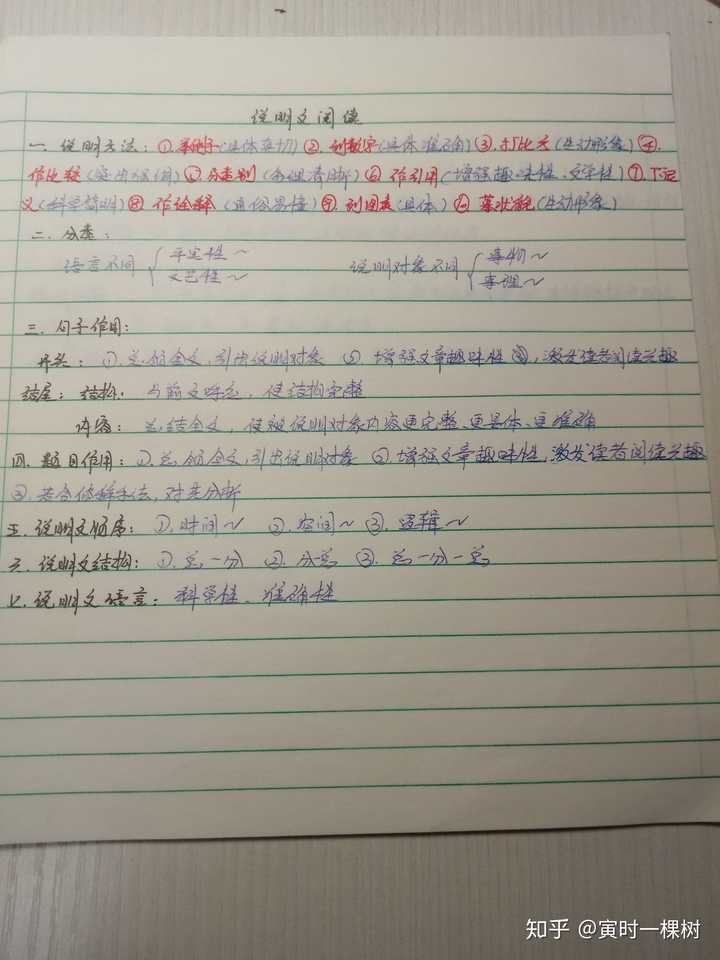 说明文阅读
一. 说明方法：①.举例子(具体真切)②.列数字(具体准确)③.打比方(生动形象)④.
作比较(突出强调)⑤.分类别(条理清晰)⑥.作引用(增强趣味性、文学性)⑦.下定
义(科学简明)⑧.作诠释(通俗易懂)⑨.列图表(具体)⑩.摹状貌(生动形象)
二. 分类：
语言不同{平实性～ 说明对象不同{事物～
文艺性～ 事理～
三. 句子作用：
开头：①.总领全文,引出说明对象 ②.增强文章趣味性,激发读者阅读兴趣
结尾：结构：与前文呼应，使结构完整
内容：总结全文，使被说明对象内容更完整、更具体、更准确
四. 题目作用：①.总领全文,引出说明对象 ②.增强文章趣味性,激发读者阅读兴趣
③.若含修辞手法，对其分析
五. 说明文顺序：①.时间～ ②.空间～ ③.逻辑～
六. 说明文结构：①.总一分 ②.分总 ③.总一分一总
七. 说明文语言：科学性、准确性
知乎 @寅时一棵树